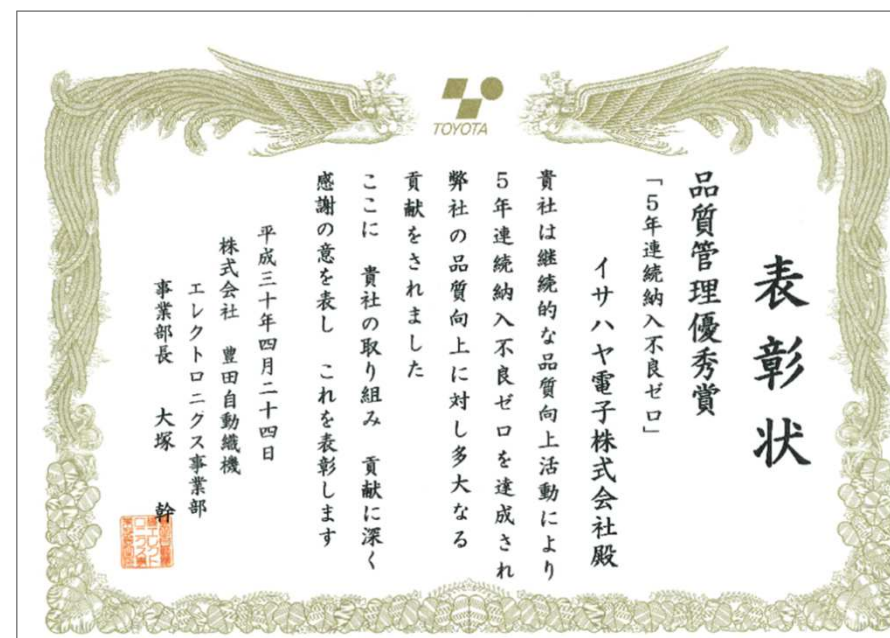 TOYOTA
表彰状
品質管理優秀賞
「5年連続納入不良ゼロ」
イサハヤ電子株式会社殿
貴社は継続的な品質向上活動により
5年連続納入不良ゼロを達成され
弊社の品質向上に対し多大なる
貢献をされました
ここに 貴社の取り組み 貢献に深く
感謝の意を表し これを表彰します
平成三十年四月二十四日
株式会社 豊田自動織機
エレクトロニクス事業部
事業部長 大塚 幹